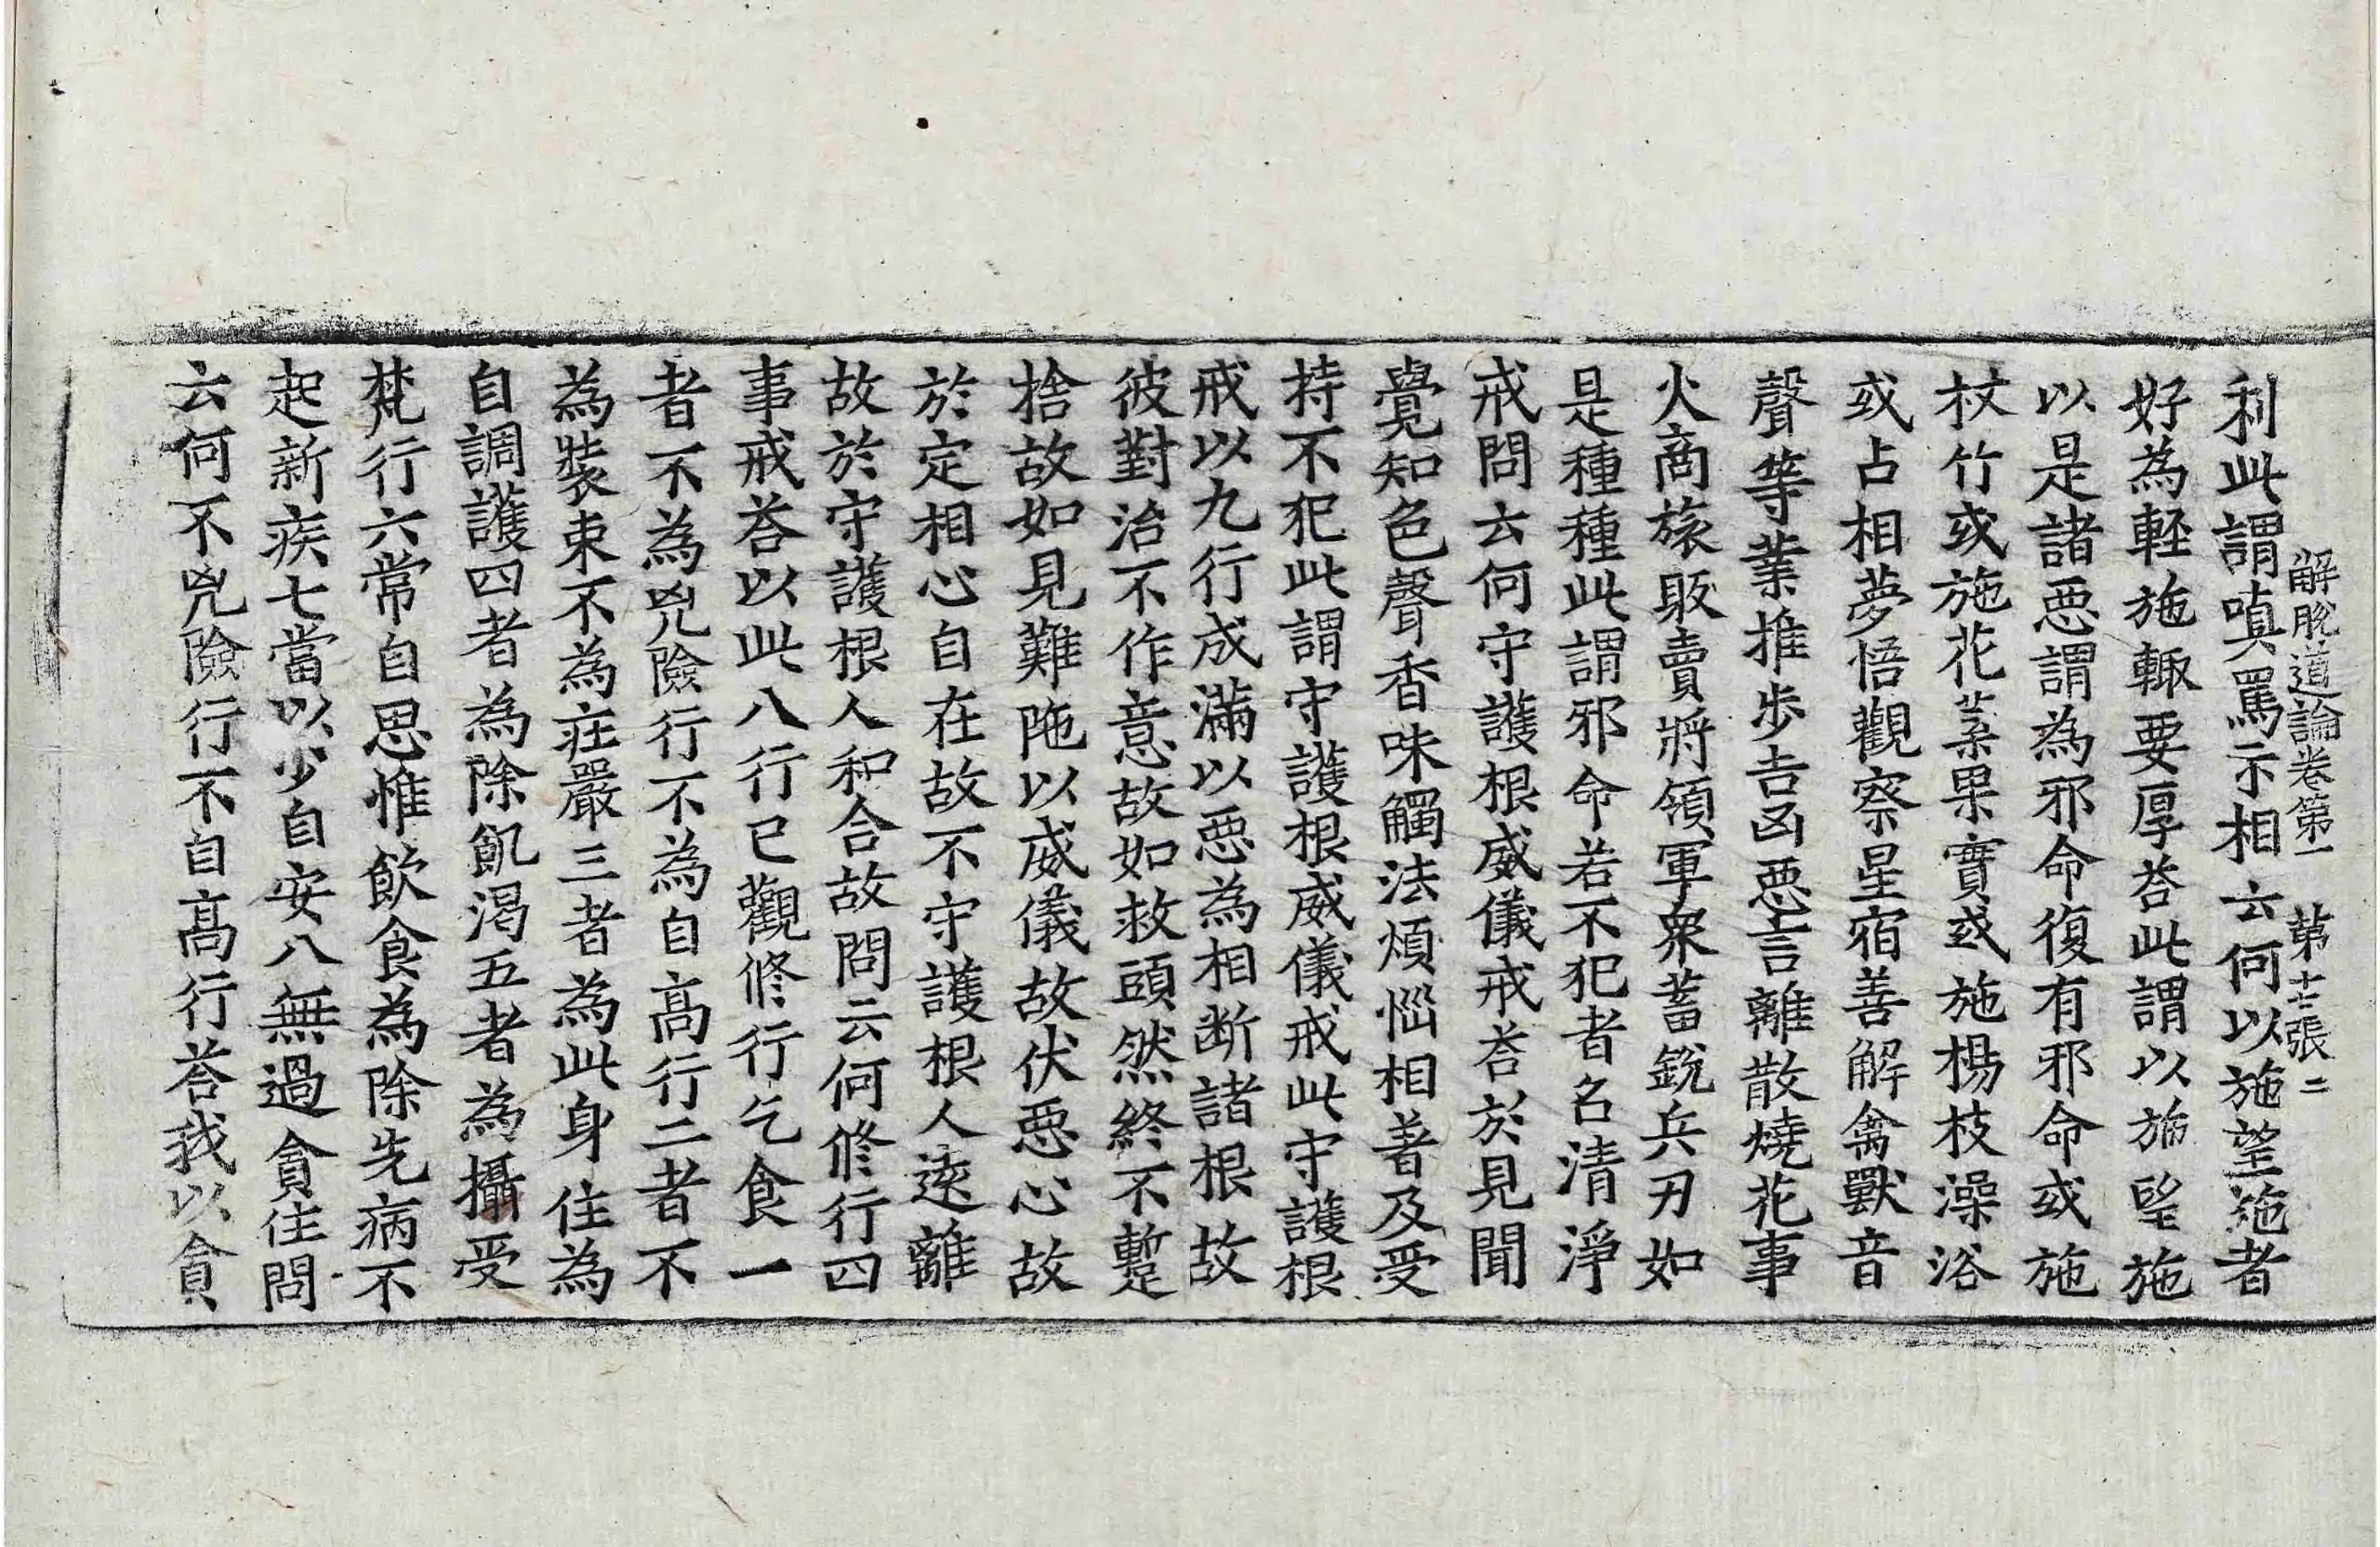 解脫道論卷第一 第十七張 二
利此謂嗔罵示相云何以施望施者
好為軽施輙要厚荅此謂以施望施
以是諸惡謂為邪命復有邪命或施
杖竹或施花葉果實或施楊枝澡浴
或占相夢悟觀察星宿善解禽獸音
聲等業推步吉凶惡言離散燒花事
火商旅販賣將領軍衆蓄銳兵刃如
是種種此謂邪命若不犯者名清淨
戒問云何守護根威儀戒荅於見聞
覺知色聲香味觸法煩惱相著及受
持不犯此謂守護根威儀戒此守護根
戒以九行成滿以惡為相断諸根故
彼對治不作意故如救頭然終不蹔
捨故如見難陁以威儀故伏惡心故
於定相心自在故不守護根人遠離
故於守護根人和合故問云何修行四
事戒荅以此八行已觀修行乞食一
者不為兇險行不為自髙行二者不
為裝束不為莊嚴三者為此身住為
自調護四者為除飢渴五者為攝受
梵行六常自思惟飲食為除先病不
起新疾七當以少自安八無過貪住問
云何不兇險行不自髙行荅我以貪